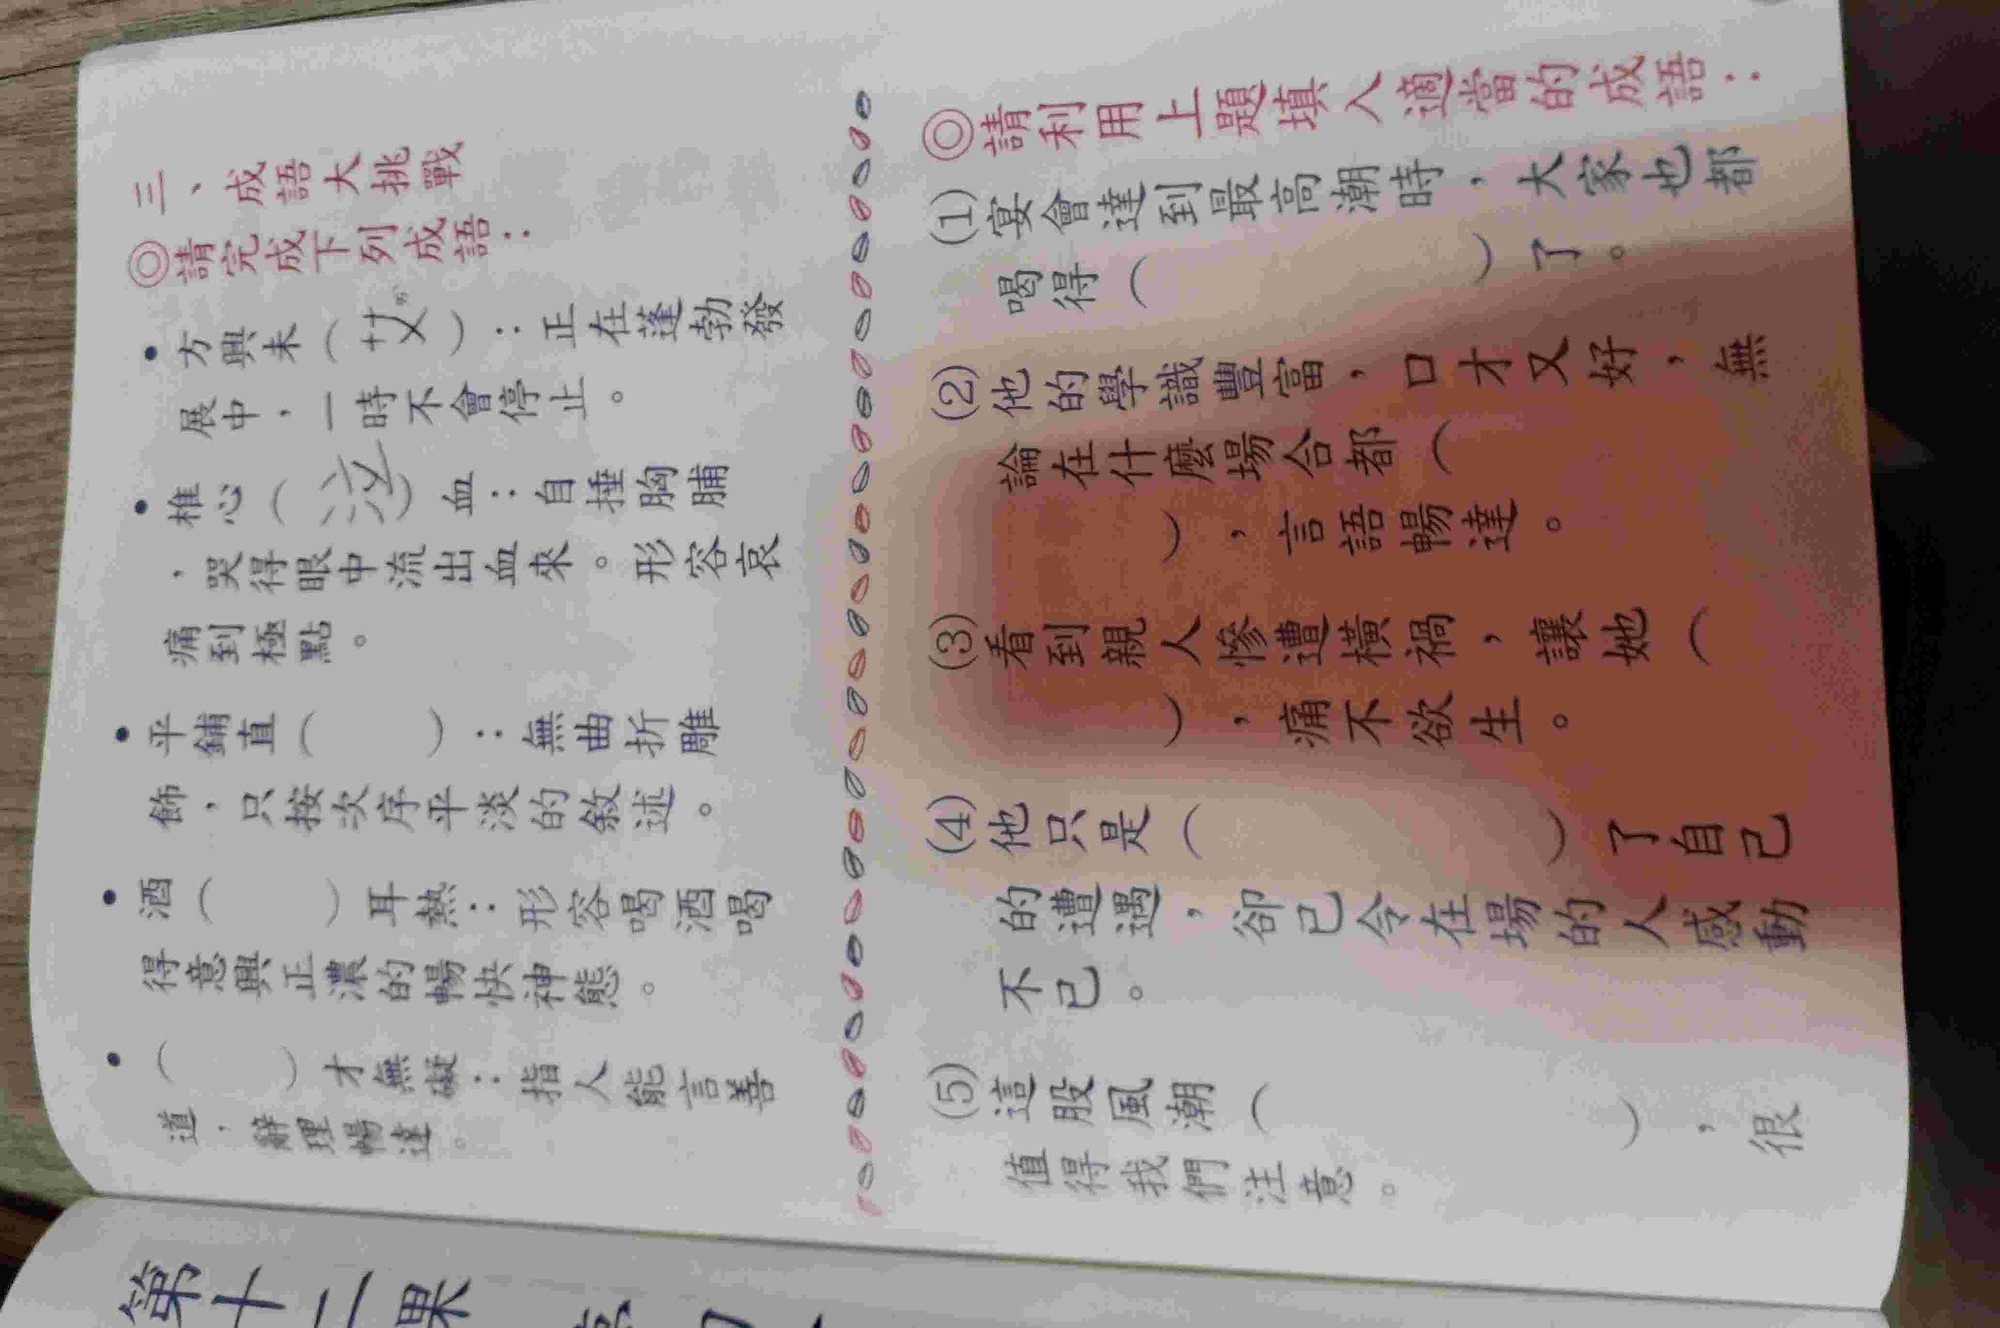 三、成語大挑戰
◎請完成下列成語：
•方興未（艾）：正在蓬勃發
展中，一時不會停止。
•椎心（泣）血：自捶胸脯
，哭得眼中流出血來。形容哀
痛到極點。
•平鋪直（　）：無曲折雕
飾，只按次序平淡的敘述。
•酒（　）耳熱：形容喝酒喝
得意興正濃的暢快神態。
•（　）才無礙：指人能言善
道，辭理暢達。
◎請利用上題填入適當的成語：
(1)宴會達到最高潮時，大家也都
喝得（　）了。
(2)他的學識豐富，口才又好，無
論在什麼場合都（
），言語暢達。
(3)看到親人慘遭橫禍，讓她（
），痛不欲生。
(4)他只是（　）了自己
的遭遇，卻已令在場的人感動
不已。
(5)這股風潮（　），很
值得我們注意。
第十二課